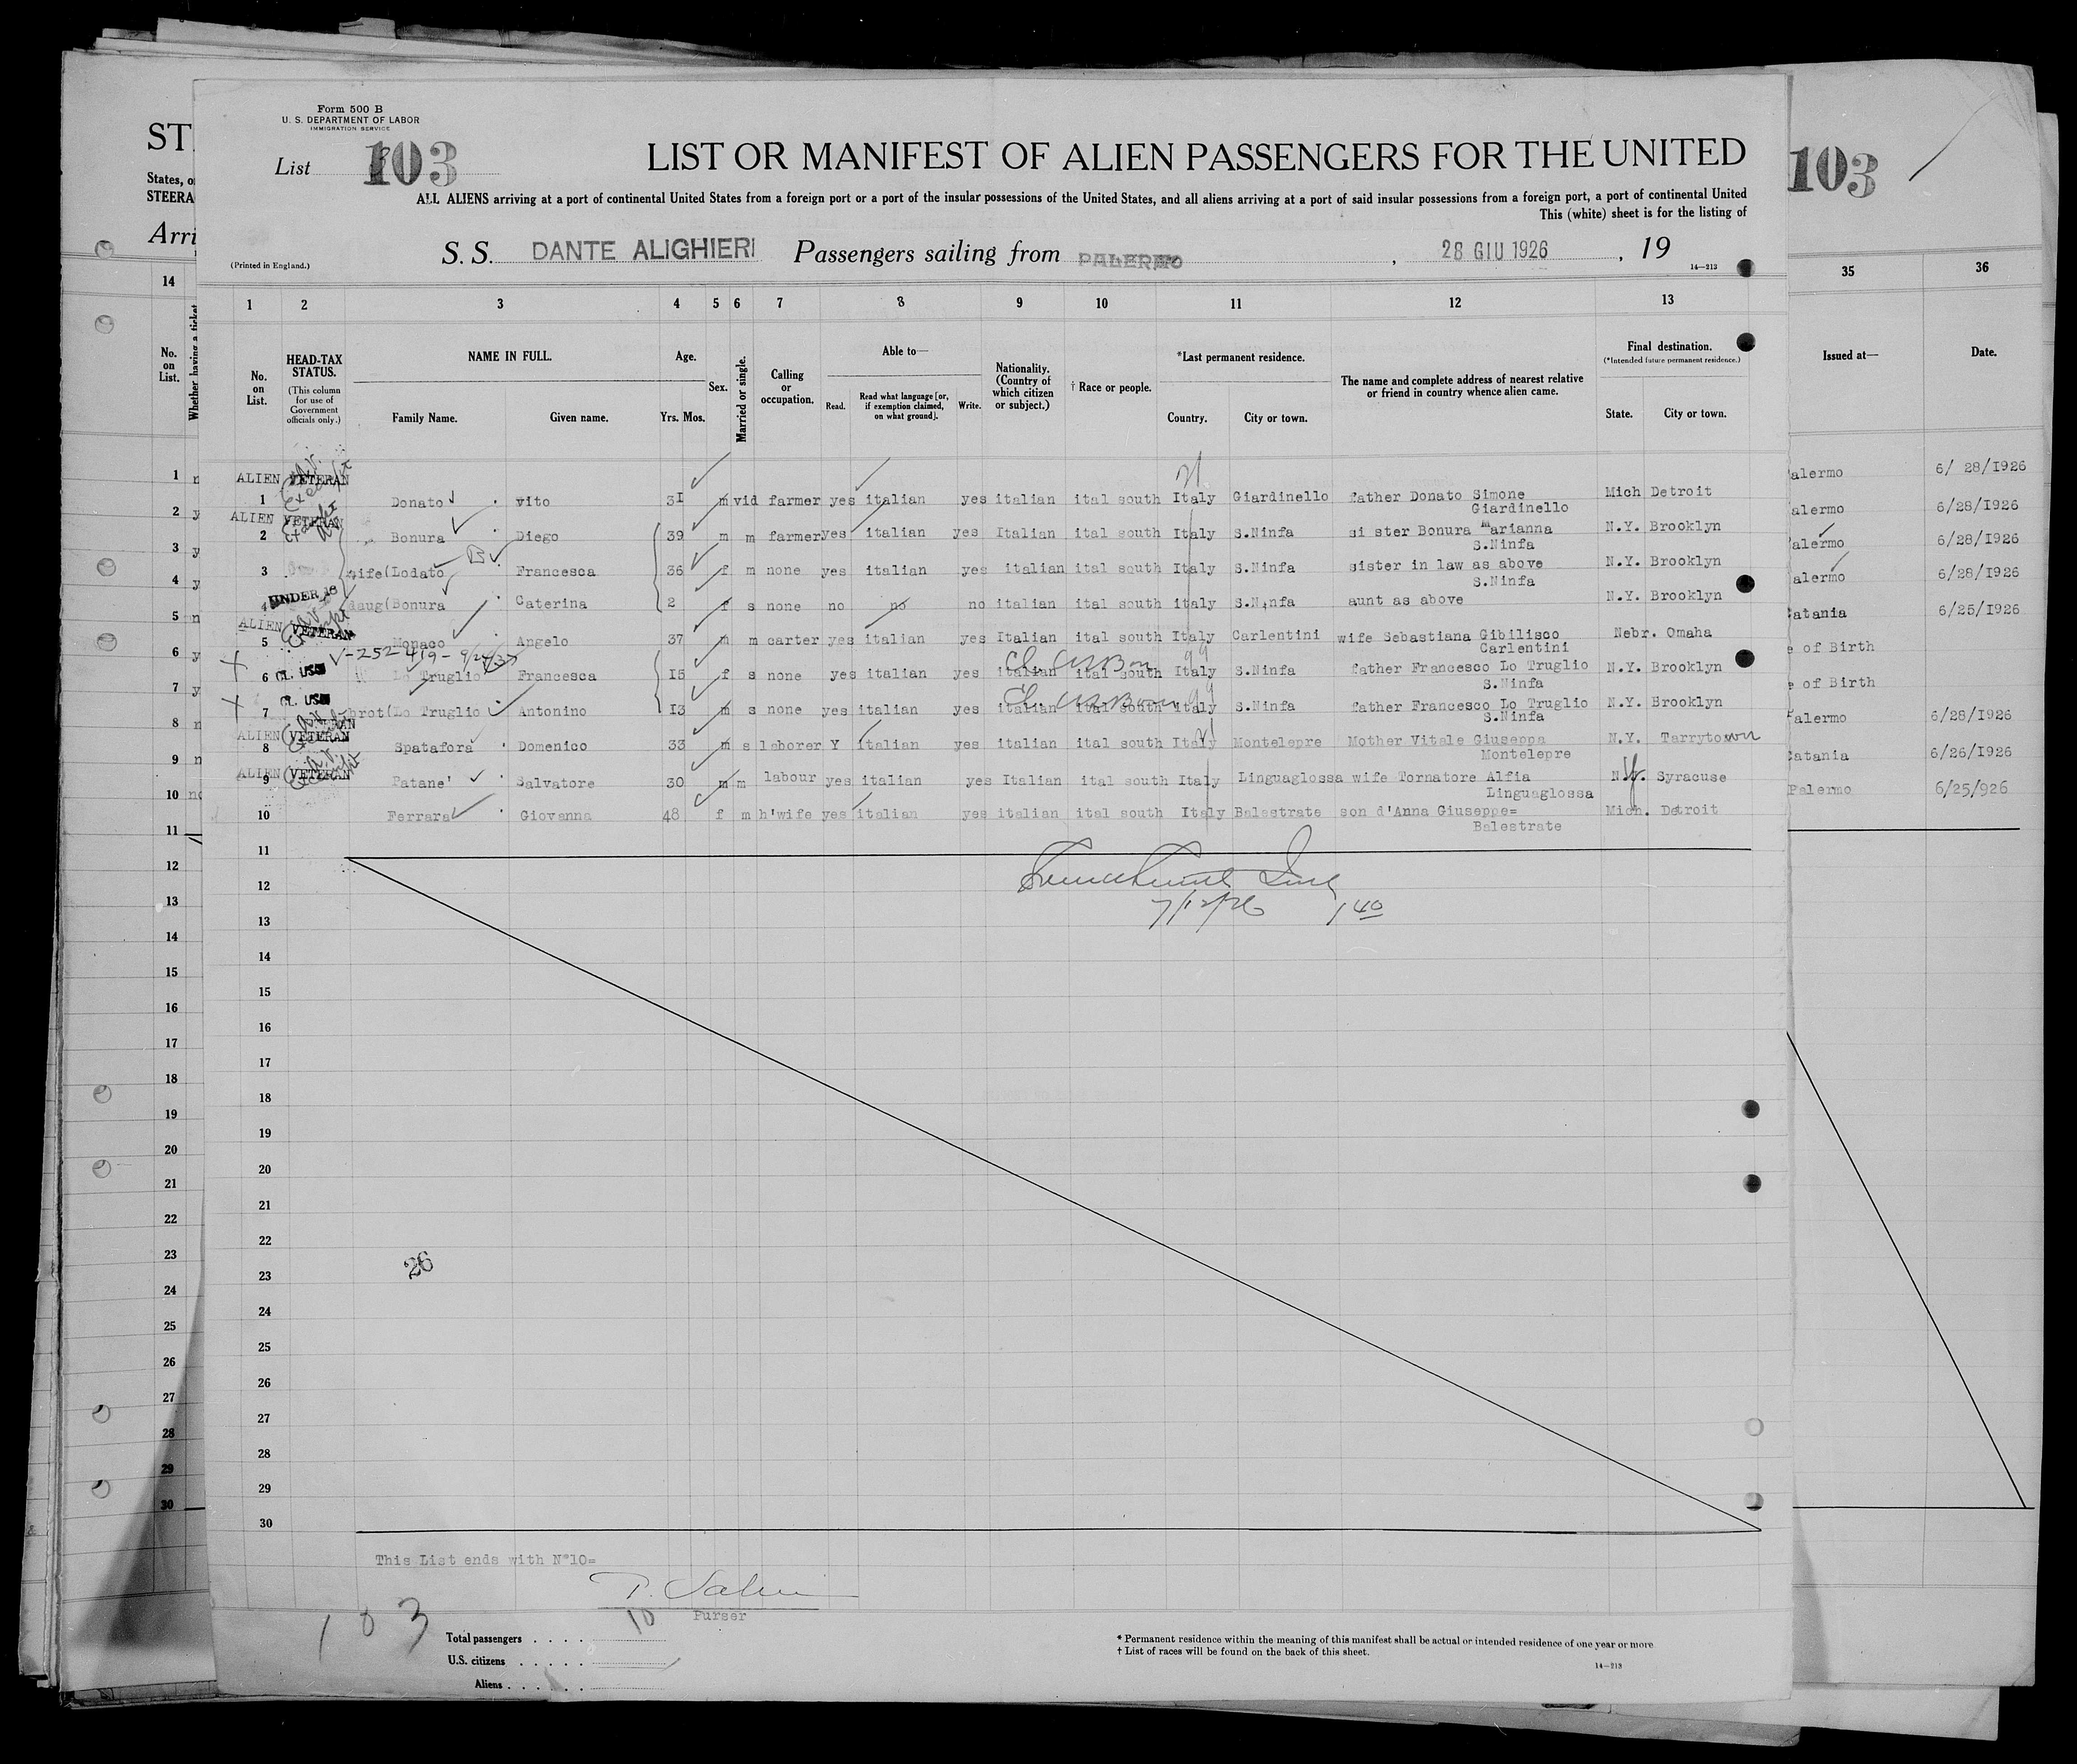 Form 500 B
U. S. DEPARTMENT OF LABOR
IMMIGRATION SERVICE
List 103
LIST OR MANIFEST OF ALIEN PASSENGERS FOR THE UNITED
ALL ALIENS arriving at a port of continental United States from a foreign port or a port of the insular possessions of the United States, and all aliens arriving at a port of said insular possessions from a foreign port, a port of continental United
This (white) sheet is for the listing of
S. S. DANTE ALIGHIERI Passengers sailing from PALERMO , 28 GIU 1926 , 19
(Printed in England.)
14—213
1 2 3 4 5 6 7 8 9 10 11 12 13
No. on List.
HEAD-TAX STATUS.
(This column for use of Government officials only.)
NAME IN FULL.
Family Name. Given name.
Age.
Yrs. Mos.
Sex.
Married or single.
Calling or occupation.
Able to—
Read.
Read what language [or, if exemption claimed, on what ground].
Write.
Nationality. (Country of which citizen or subject.)
† Race or people.
*Last permanent residence.
Country. City or town.
The name and complete address of nearest relative or friend in country whence alien came.
Final destination.
(*Intended future permanent residence.)
State. City or town.
ALIEN VETERAN
1 Donato vito 3I m vid farmer yes italian yes italian ital south Italy Giardinello father Donato Simone Mich Detroit
Giardinello
ALIEN VETERAN
2 Bonura Diego 39 m m farmer yes italian yes Italian ital south Italy S.Ninfa si ster Bonura marianna N.Y. Brooklyn
S.Ninfa
3 wife(Lodato Francesca 36 f m none yes italian yes italian ital south Italy S.Ninfa sister in law as above N.Y. Brooklyn
S.Ninfa
UNDER 16
4 daug(Bonura Caterina 2 f s none no no no italian ital south italy S.Ninfa aunt as above N.Y. Brooklyn
ALIEN VETERAN
5 Monaco Angelo 37 m m carter yes italian yes Italian ital south Italy Carlentini wife Sebastiana Gibilisco Nebr. Omaha
Carlentini
V-252419-9/24/37
6 Lo Truglio Francesca I5 f s none yes italian yes italian ital south Italy S.Ninfa father Francesco Lo Truglio N.Y. Brooklyn
S.Ninfa
7 brot(Lo Truglio Antonino I3 m s none yes italian yes italian ital south italy S.Ninfa father Francesco Lo Truglio N.Y. Brooklyn
S.Ninfa
ALIEN VETERAN
8 Spatafora Domenico 33 m s laborer Y italian yes italian ital south Italy Montelepre Mother Vitale Giuseppa N.Y. Tarrytown
Montelepre
ALIEN VETERAN
9 Patane' Salvatore 30 m m labour yes italian yes Italian ital south Italy Linguaglossa wife Tornatore Alfia N.Y. Syracuse
Linguaglossa
10 Ferrara Giovanna 48 f m h'wife yes italian yes italian ital south Italy Balestrate son d'Anna Giuseppe= Mich. Detroit
Balestrate
11
12
7/12/26 1 40
13
14
15
16
17
18
19
20
21
22
23
26
24
25
26
27
28
29
30
This List ends with N°10=
Purser
103
10
Total passengers
U.S. citizens
Aliens
* Permanent residence within the meaning of this manifest shall be actual or intended residence of one year or more
† List of races will be found on the back of this sheet.
14—213
ST
States, o
STEERA
Arri
14
No. on List.
Whether having a ticket
1 n
2 y
3 y
4 y
5 n
6 y
7 y
8 n
9 n
10 no
11
12
13
14
15
16
17
18
19
20
21
22
23
24
25
26
27
28
29
30
103
35 36
Issued at— Date.
alermo 6/ 28/1926
alermo 6/28/1926
alermo 6/28/1926
alermo 6/28/1926
Catania 6/25/1926
e of Birth
e of Birth
Palermo 6/28/1926
Catania 6/26/1926
Palermo 6/25/926